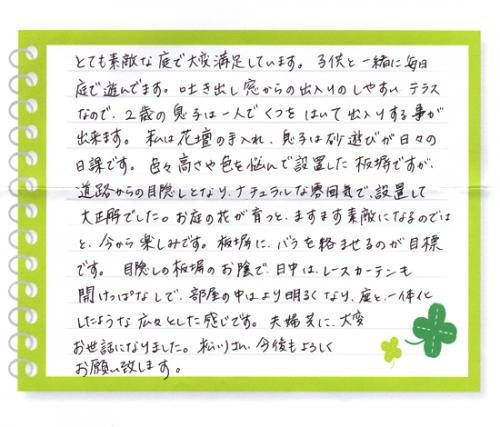 とても素敵な庭で大変満足しています。子供と一緒に毎日
庭で遊んでます。吐き出し窓からの出入りのしやすいテラス
なので、2歳の息子は一人でくつをはいて出入りする事が
出来ます。私は花壇の手入れ、息子は砂遊びが日々の
日課です。色々高さや色を悩んで設置した板塀ですが、
道路からの目隠しとなり、ナチュラルな雰囲気で、設置して
大正解でした。お庭の花が育つと、ますます素敵になるのでは
と、今から楽しみです。板塀に、バラを絡ませるのが目標
です。目隠しの板塀のお陰で、日中は、レースカーテンも
開けっぱなしで、部屋の中はより明るくなり、庭と、一体化
したような広々とした感じです。夫婦共に、大変
お世話になりました。松川さん、今後もよろしく
お願い致します。